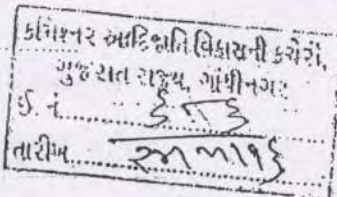 કમિશ્નર આદિજાતિ વિકાસની કચેરી,
ગુજરાત રાજ્ય, ગાંધીનગર
ઈ. નં. ૬૧૬
તારીખ